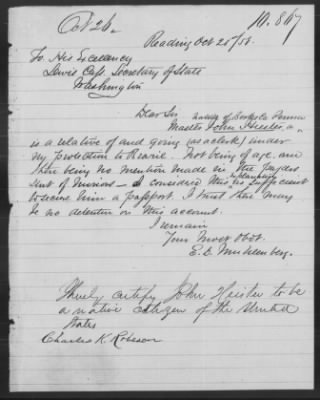 Oct 26.
10.867
Reading Oct 25/58.
To His Excellency
Lewis Cass. Secretary of State
Washington
Dear Sir
native of Berks Co Penna
Master John Hiester a
is a relative of and going (as a clerk) under
my protection to Brazil. Not being of age, and
there being no mention made in the
of Minors — I considered this explanation sufficient
to secure him a passport. I trust there may
be no detention on this account.
I remain
Your Most Obdt.
E. D. Muhlenberg.
I hereby certify John Heister to be
a native citizen of the United
States
Charles K. Robeson